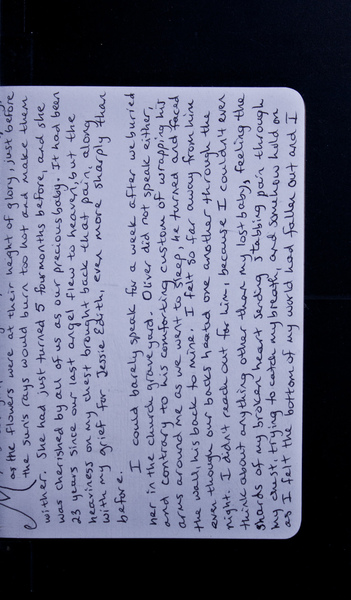 as the flowers were at their height of glory, just before
the sun's rays would burn too hot and make them
wither. She had just turned 5 four months before, and she
was cherished by all of us as our precious baby. It had been
23 years since our last angel flew to heaven, but the
heaviness on my chest brought back that pain, along
with my grief for Jessie Edith, even more sharply than
before.
I could barely speak for a week after we buried
her in the church graveyard. Oliver did not speak either,
and contrary to his comforting custom of wrapping his
arms around me as we went to sleep, he turned and faced
the wall, his back to mine. I felt so far away from him
even though our backs heated one another through the
night. I didn't reach out for him, because I couldn't even
think about anything other than my lost baby, feeling the
shards of my broken heart sending stabbing pain through
my chest, trying to catch my breath, and somehow hold on
as I felt the bottom of my world had fallen out and I